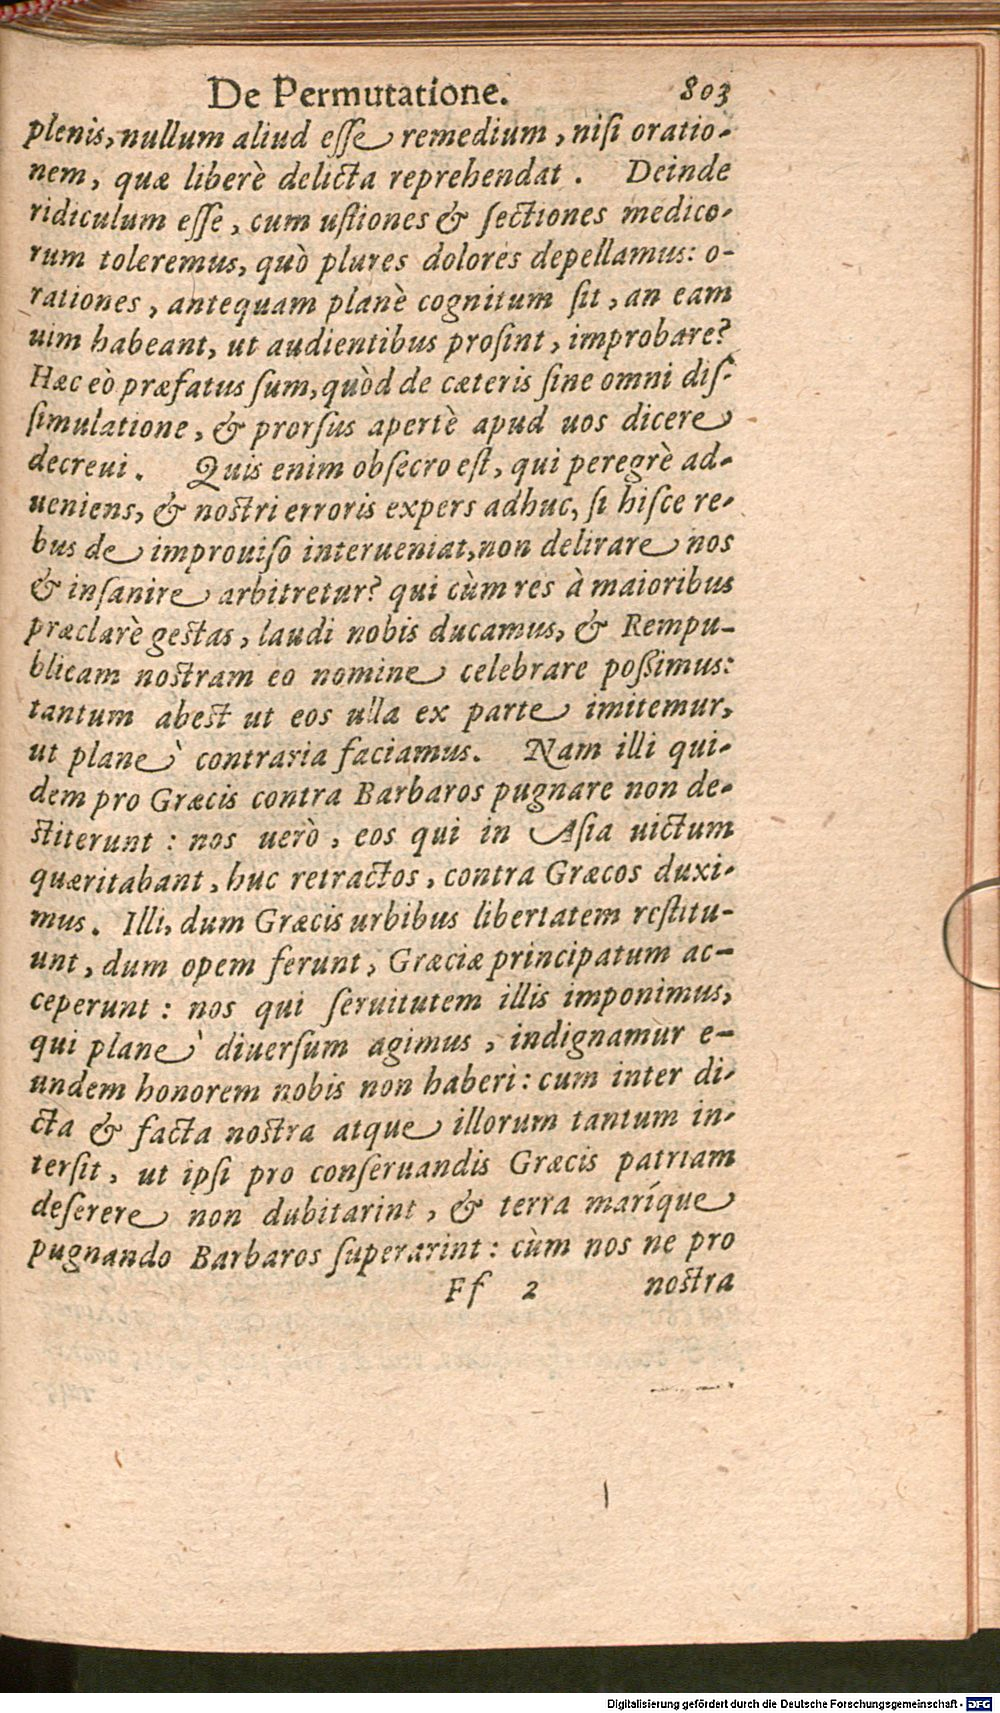 De Permutatione. 803
plenis, nullum aliud esse remedium, nisi oratio-
nem, quæ liberè delicta reprehendat. Deinde
ridiculum esse, cum ustiones & sectiones medico-
rum toleremus, quò plures dolores depellamus: o-
rationes, antequam planè cognitum sit, an eam
uim habeant, ut audientibus prosint, improbare?
Hæc eò præfatus sum, quòd de cæteris sine omni dis-
simulatione, & prorsus apertè apud uos dicere
decreui. Quis enim obsecro est, qui peregrè ad-
ueniens, & nostri erroris expers adhuc, si hisce re-
bus de improuiso interueniat, non delirare nos
& insanire arbitretur? qui cùm res à maioribus
præclarè gestas, laudi nobis ducamus, & Rempu-
blicam nostram eo nomine celebrare possimus:
tantum abest ut eos ulla ex parte imitemur,
ut planè contraria faciamus. Nam illi qui-
dem pro Græcis contra Barbaros pugnare non de-
stiterunt: nos uerò, eos qui in Asia uictum
quæritabant, huc retractos, contra Græcos duxi-
mus. Illi, dum Græcis urbibus libertatem restitu-
unt, dum opem ferunt, Græciæ principatum ac-
ceperunt: nos qui seruitutem illis imponimus,
qui planè diuersum agimus, indignamur e-
undem honorem nobis non haberi: cum inter di-
cta & facta nostra atque illorum tantum in-
tersit, ut ipsi pro conseruandis Græcis patriam
deserere non dubitarint, & terra maríque
pugnando Barbaros superarint: cùm nos ne pro
Ff 2 nostra
Digitalisierung gefördert durch die Deutsche Forschungsgemeinschaft - DFG